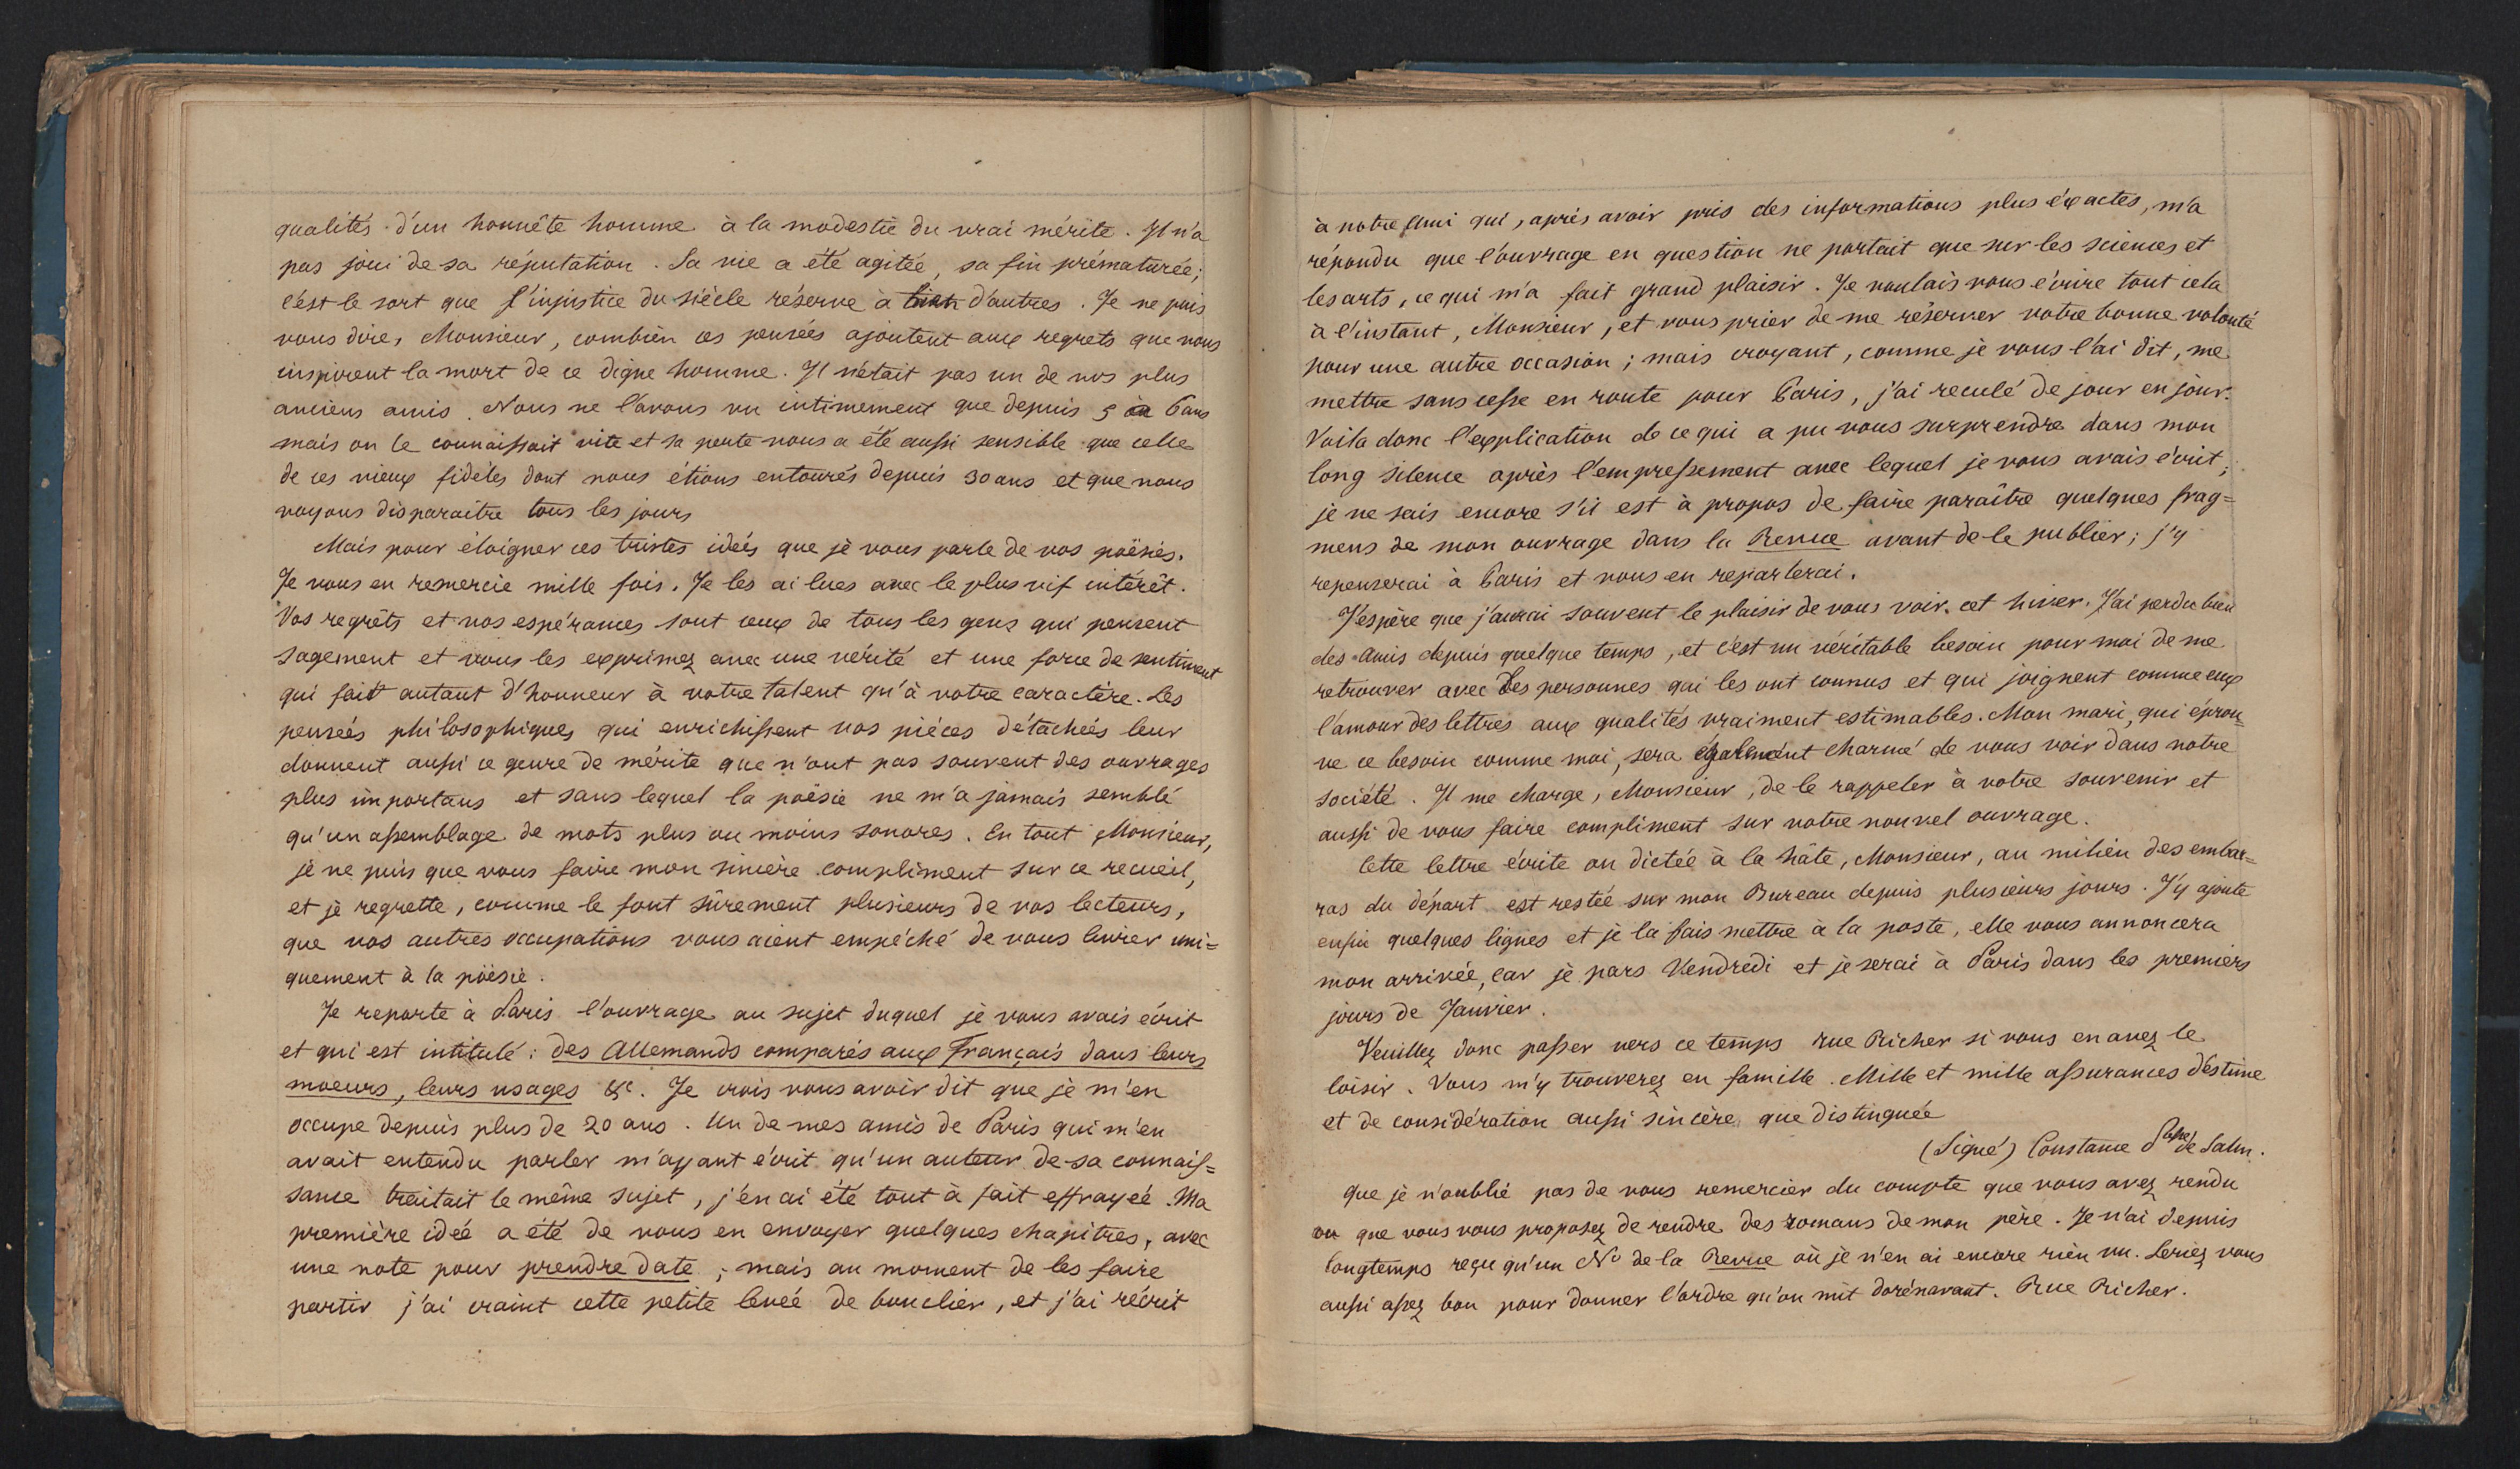 qualités d'un honnête homme à la modestie du vrai mérite. Il n'a
pas joui de sa réputation. Sa vie a été agitée, sa fin prématurée;
c'est le sort que l'injustice du siècle réserve à bien d'autres. Je ne puis
vous dire, Monsieur, combien ces pensées ajoutent aux regrets que nous
inspirent la mort de ce digne homme. Il n'était pas un de nos plus
anciens amis. Nous ne l'avons vu intimement que depuis 5 à 6 ans
mais on le connaissait vite et sa perte nous a été aussi sensible que celle
de ces vieux fidèles dont nous étions entourés depuis 30 ans et que nous
voyons disparaitre tous les jours
Mais pour éloigner ces tristes idées que je vous parle de vos poësies.
Je vous en remercie mille fois. Je les ai lues avec le plus vif intérêt.
Vos regrêts et vos espérances sont ceux de tous les gens qui pensent
sagement et vous les exprimez avec une vérité et une force de sentiment
qui fait autant d'honneur à votre talent qu'à votre caractère. Les
pensées philosophiques qui enrichissent vos pièces détachées leur
donnent aussi ce genre de mérite que n'ont pas souvent des ouvrages
plus importans et sans lequel la poësie ne m'a jamais semblé
qu'un assemblage de mots plus ou moins sonores. En tout Monsieur,
je ne puis que vous faire mon sincère compliment sur ce recueil,
et je regrette, comme le font sûrement plusieurs de vos lecteurs,
que vos autres occupations vous aient empêché de vous livrer uni=
quement à la poësie.
Je reporte à Paris l'ouvrage au sujet duquel je vous avais écrit
et qui est intitulé: des Allemands comparés aux Français dans leurs
moeurs, leurs usages &c. Je crois vous avoir dit que je m'en
occupe depuis plus de 20 ans. Un de mes amis de Paris qui m'en
avait entendu parler m'ayant écrit qu'un auteur de sa connais=
sance traitait le même sujet, j'en ai été tout à fait effrayée. Ma
première idée a été de vous en envoyer quelques chapitres, avec
une note pour prendre date; mais au moment de les faire
partir j'ai craint cette petite levée de bouclier, et j'ai récrit
à notre ami qui, après avoir pris des informations plus éxactes, m'a
répondu que l'ouvrage en question ne portait que sur les sciences et
les arts, ce qui m'a fait grand plaisir. Je voulais vous écrire tout cela
à l'instant, Monsieur, et vous prier de me réserver votre bonne volonté
pour une autre occasion; mais croyant, comme je vous l'ai dit, me
mettre sans cesse en route pour Paris, j'ai reculé de jour en jour.
Voila donc l'explication de ce qui a pu vous surprendre dans mon
long silence après l'empressement avec lequel je vous avais écrit;
je ne sais encore s'il est à propos de faire paraître quelques frag=
mens de mon ouvrage dans la Revue avant de le publier; j'y
repenserai à Paris et vous en reparlerai.
J'espère que j'aurai souvent le plaisir de vous voir cet hiver. J'ai perdu bien
des amis depuis quelque temps, et c'est un véritable besoin pour moi de me
retrouver avec des personnes qui les ont connus et qui joignent comme eux
l'amour des lettres aux qualités vraiment estimables. Mon mari, qui éprou=
ve ce besoin comme moi, sera également charmé de vous voir dans notre
société. Il me charge, Monsieur, de le rappeler à votre souvenir et
aussi de vous faire compliment sur votre nouvel ouvrage.
Cette lettre écrite ou dictée à la hâte, Monsieur, au milieu des embar=
ras du départ est restée sur mon Bureau depuis plusieurs jours. J'y ajoute
enfin quelques lignes et je la fais mettre à la poste, elle vous annoncera
mon arrivée, car je pars Vendredi et je serai à Paris dans les premiers
jours de Janvier.
Veuillez donc passer vers ce temps rue Richer si vous en avez le
loisir. Vous m'y trouverez en famille. Mille et mille assurances d'estime
et de considération aussi sincère que distinguée
(Signé) Constance Psse de Salm.
Que je n'oublie pas de vous remercier du compte que vous avez rendu
ou que vous vous proposez de rendre des romans de mon père. Je n'ai depuis
longtemps reçu qu'un No de la Revue où je n'en ai encore rien vu. Seriez vous
aussi assez bon pour donner l'ordre qu'on mit dorénavant. Rue Richer.